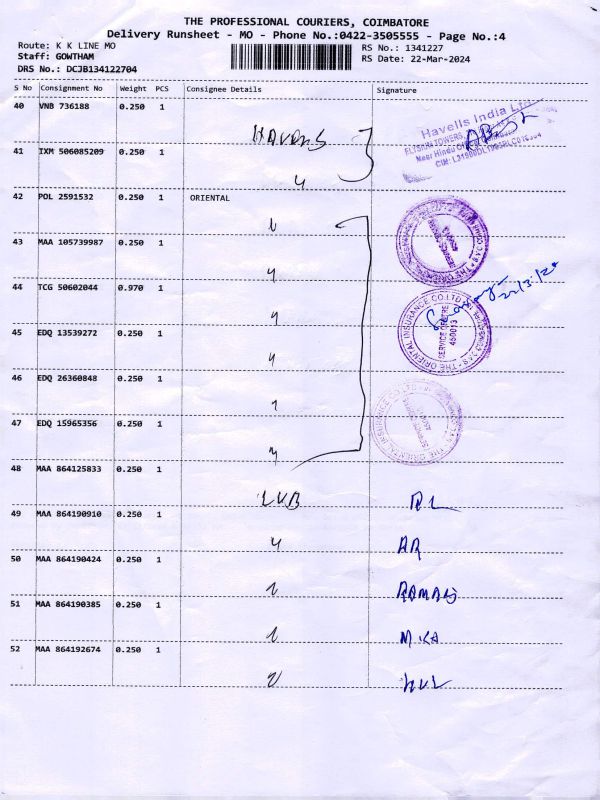 THE PROFESSIONAL COURIERS, COIMBATORE
Delivery Runsheet - MO - Phone No.:0422-3505555 - Page No.:4
Route: K K LINE MO
RS No.: 1341227
Staff: GOWTHAM
RS Date: 22-Mar-2024
DRS No.: DCJB134122704
S No Consignment No Weight PCS Consignee Details Signature
40 VNB 736188 0.250 1
HAVELLS
Havells India Ltd
41 IXM 506085209 0.250 1
42 POL 2591532 0.250 1 ORIENTAL
43 MAA 105739987 0.250 1
44 TCG 50602044 0.970 1
22/3/24
THE ORIENTAL INSURANCE CO.LTD
SERVICE CENTRE
450013
45 EDQ 13539272 0.250 1
46 EDQ 26360848 0.250 1
47 EDQ 15965356 0.250 1
48 MAA 864125833 0.250 1
LVB RL
49 MAA 864190910 0.250 1
AR
50 MAA 864190424 0.250 1
RAMAS
51 MAA 864190385 0.250 1
52 MAA 864192674 0.250 1